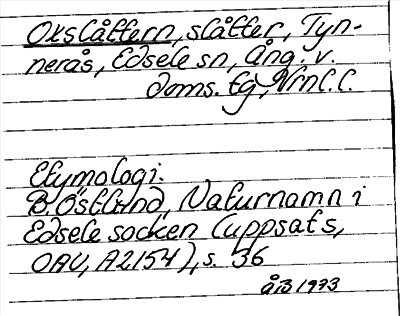 Oxslåttern, slåtter, Tyn-
nerås, Edsele sn, Ång. v.
doms. tg, Vrnl.l.
Etymologi:
B. Östlund, Naturnamn i
Edsele socken (uppsats,
OAU, A2154), s. 36
åiB 1973